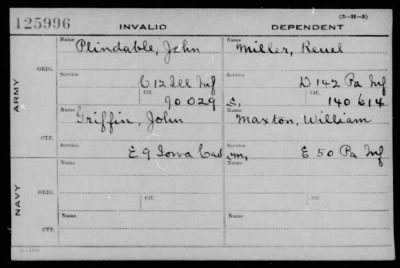 125996 INVALID DEPENDENT (3-H-5)
Name Plindable, John Name Miller, Reuel
ORIG.
Service C 12 Ill Inf Service D 142 Pa Inf
ARMY
Ctf. 90029 S. Ctf. 140614
Name Griffin, John Name Maxton, William
CTF.
Service E 9 Iowa Cav m, Service E 50 Pa Inf
NAVY
ORIG.
Ctf. Ctf.
Name Name
CTF.
Service Service